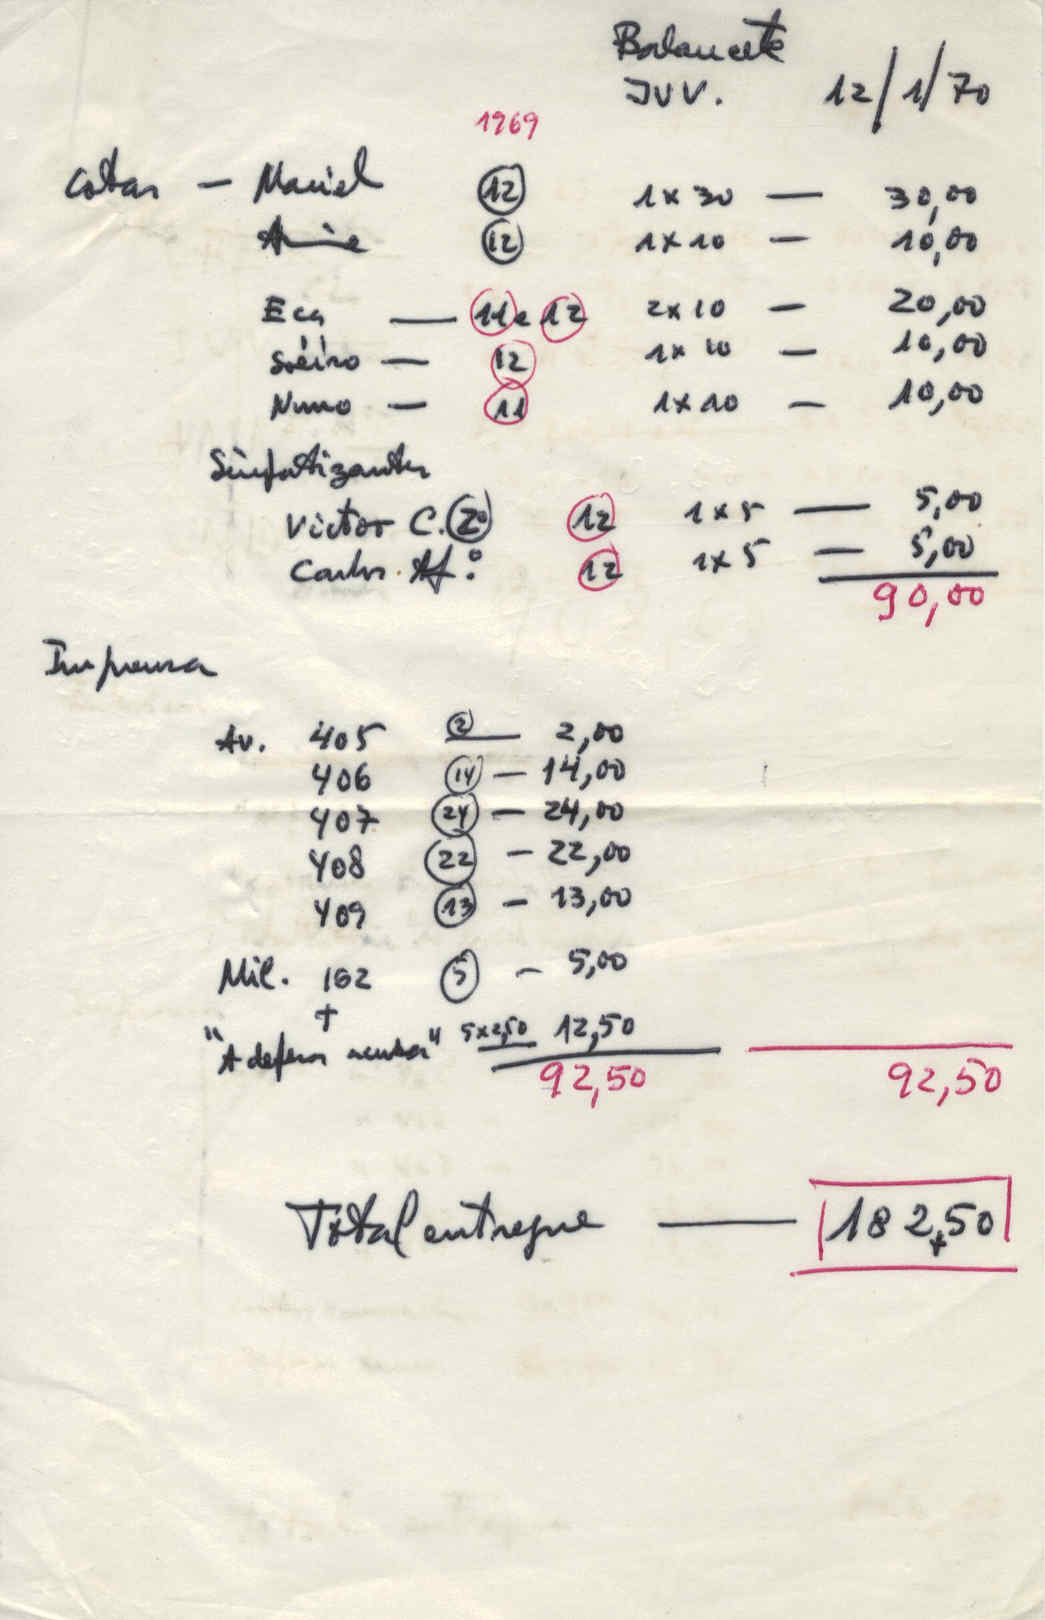 Balancete
JUV. 12/1/70
1969
Cotas — Maciel 12 1x30 — 30,00
12 1x10 — 10,00
Eça — 11 e 12 2x10 — 20,00
Soeiro — 12 1x10 — 10,00
Nuno — 11 1x10 — 10,00
Simpatizantes
Victor C. 2º 12 1x5 — 5,00
Carlos Afº 12 1x5 — 5,00
90,00
Imprensa
Av. 405 2 — 2,00
406 14 — 14,00
407 24 — 24,00
408 22 — 22,00
409 13 — 13,00
Mil. 162 5 — 5,00
+
"A defesa acusa" 5x2,50 12,50
92,50 92,50
Total entregue — 182,50